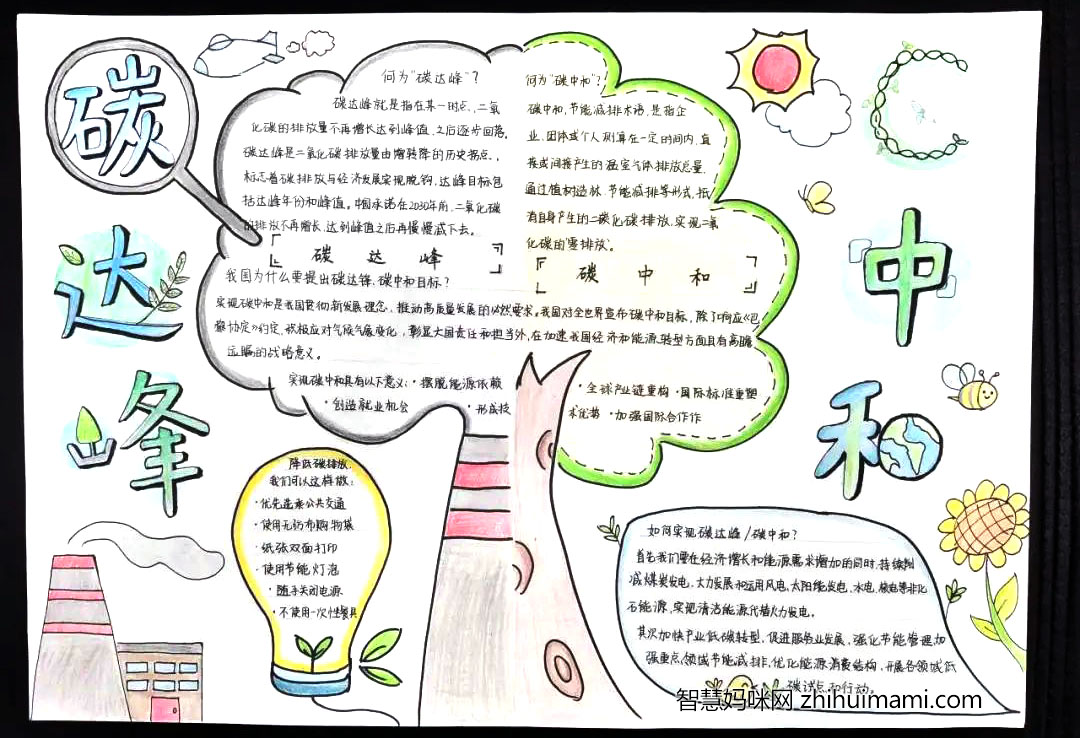 碳
达
峰
C
中
和
何为“碳达峰”?
碳达峰就是指在某一时点,二氧
化碳的排放量不再增长达到峰值,之后逐步回落。
碳达峰是二氧化碳排放量由增转降的历史拐点,
标志着碳排放与经济发展实现脱钩,达峰目标包
括达峰年份和峰值。中国承诺在2030年前,二氧化碳
的排放不再增长,达到峰值之后再慢慢减下去。
碳 达 峰
何为“碳中和”?
碳中和,节能减排术语,是指企
业、团体或个人测算在一定的间内,直
接或间接产生的温室气体排放总量,
通过植树造林、节能减排等形式,抵
消自身产生的二碳化碳排放,实现二氧
化碳的“零排放”。
碳 中 和
我国为什么要提出碳达锋,碳中和目标?
实现碳中和是我国贯彻新发展理念,推动高质量发展的必然要求。我国对全世界宣布碳中和目标,除了响应《巴
黎协定》约定,积极应对气候气废变化,彰显大国责任和担当外,在加速我国经济和能源转型方面具有高瞻
远瞩的战略意义。
实现碳中和具有以下意义:·摆脱能源依赖
·全球产业链重构 ·国际标准重塑
·创造就业机会 ·形成技
术优势 ·加强国际合作作
降低碳排放,
我们可以这样做:
·优先选乘公共交通
·使用无纺布购物袋
·纸张双面打印
·使用节能灯泡
·随手关闭电源
·不使用一次性餐具
如何实现碳达峰/碳中和?
首先我们要在经济增长和能源需求增加的同时,持续削
减煤炭发电,大力发展和运用风电、太阳能发电、水电、核电等非化
石能源,实现清洁能源代替火力发电。
其次加快产业低碳转型,促进服务业发展,强化节能管理加
强重点领域节能减排,优化能源消费结构,开展各领域低
碳试点和行动。
智慧妈咪网 zhihuimami.com